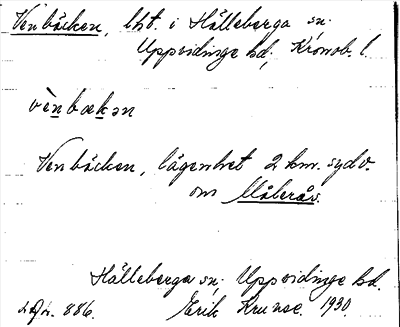 Venbäcken, lht. i Hälleberga sn;
Uppvidinge hd, Kronob. l.
vènbækən
Venbäcken, lägenhet 2 km. sydv.
om Målerås.
Hälleberga sn; Uppvidinge hd.
886. Erik Krunse. 1930